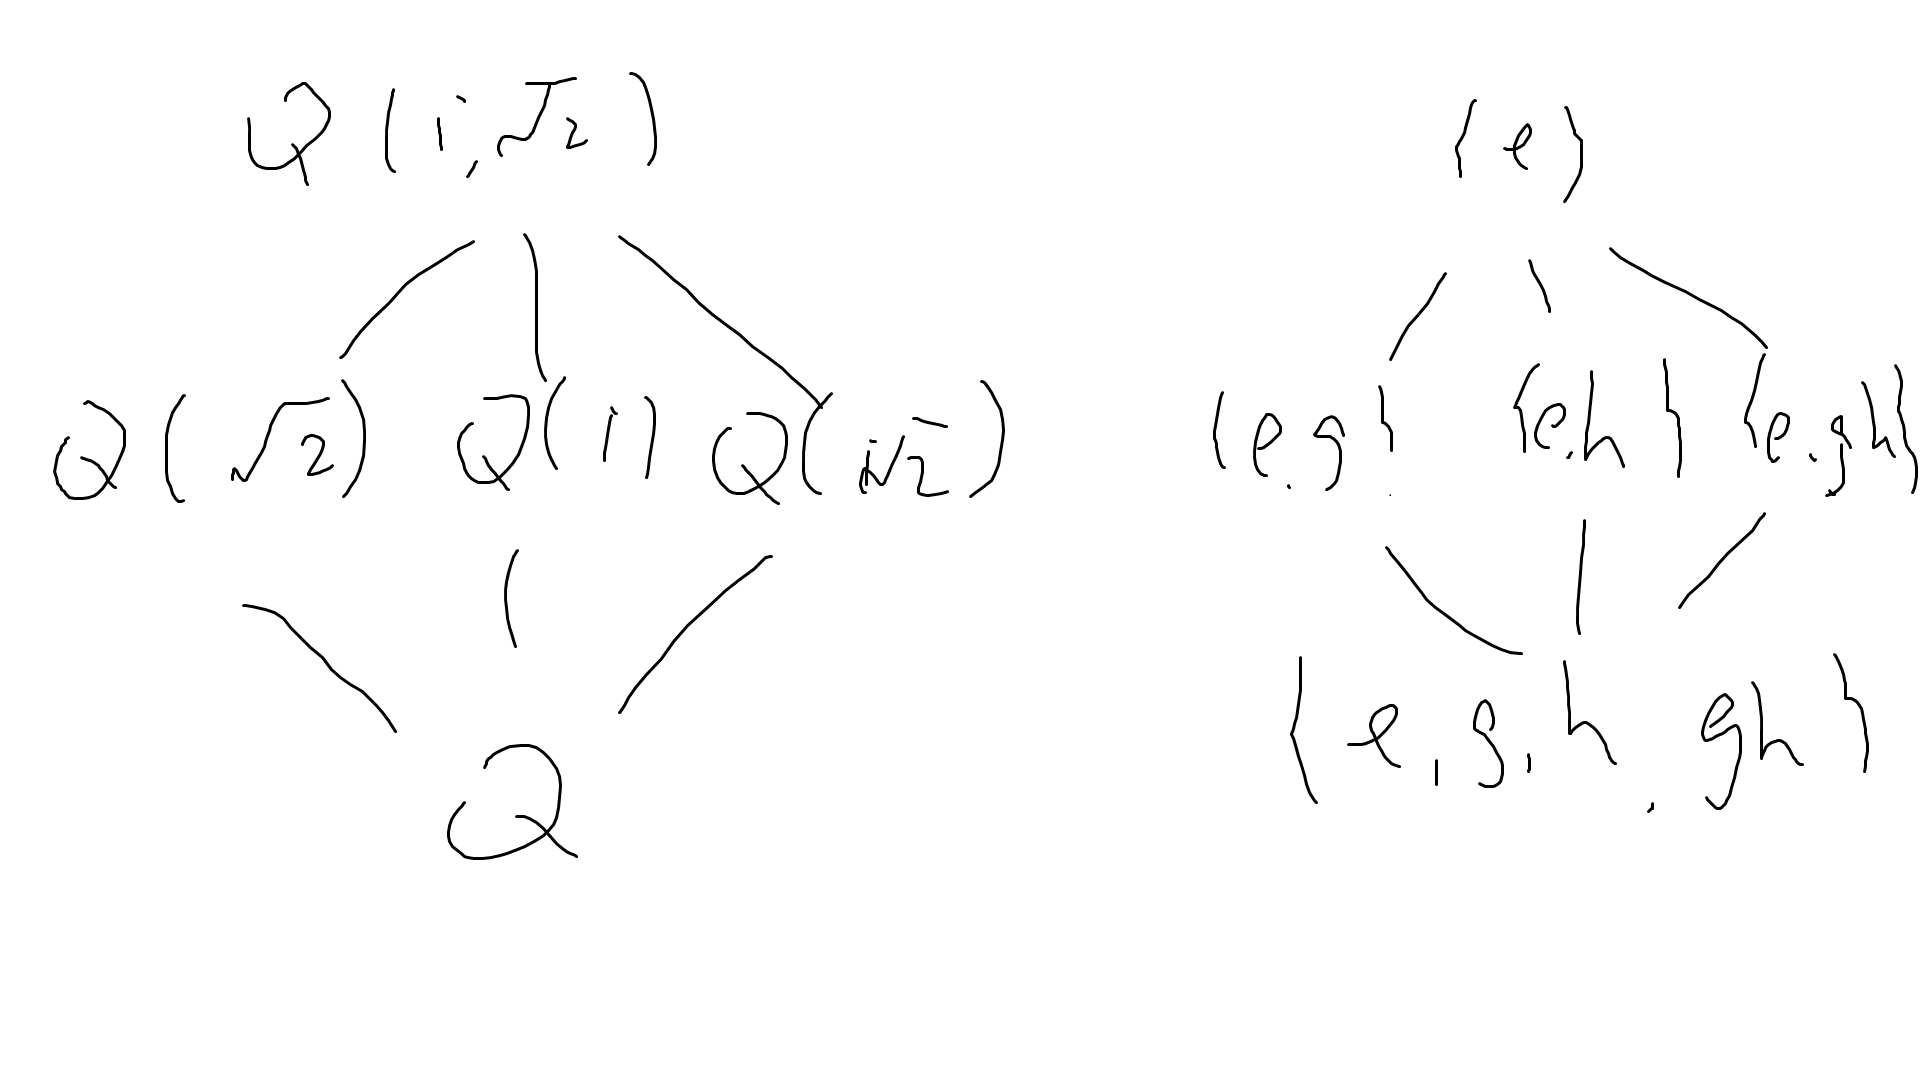 Q(i,√2) {e}
Q(√2) Q(i) Q(i√2) {e.g} {e.h} {e.gh}
Q {e,g,h,gh}